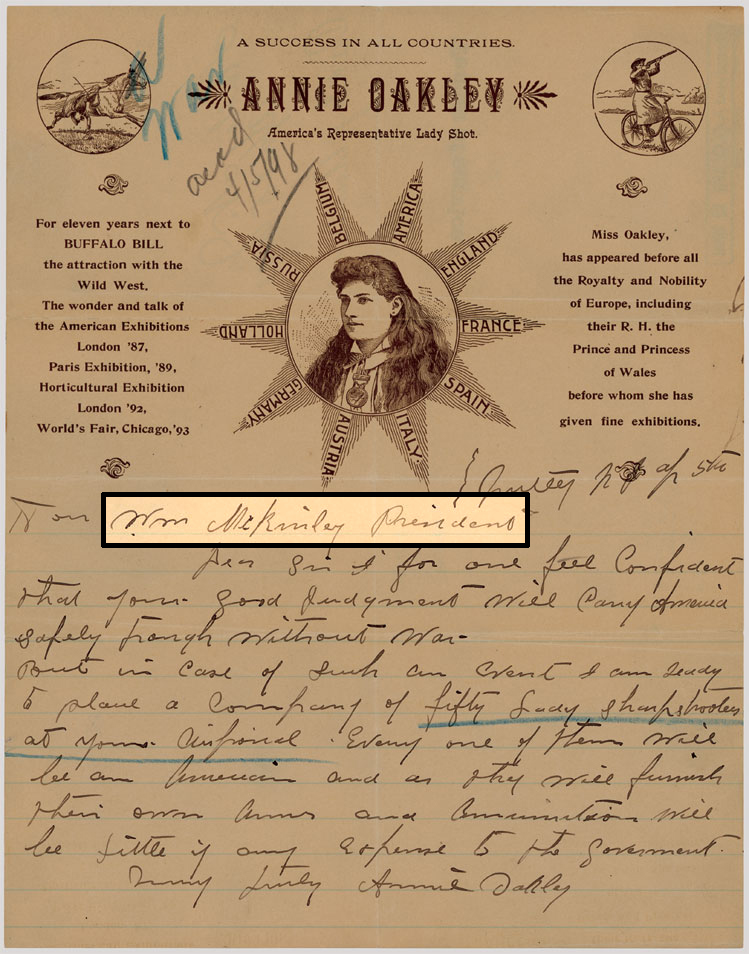 A SUCCESS IN ALL COUNTRIES.
ANNIE OAKLEY
America's Representative Lady Shot.
War
ackd
4/5/98
For eleven years next to
BUFFALO BILL
the attraction with the
Wild West.
The wonder and talk of
the American Exhibitions
London '87,
Paris Exhibition, '89,
Horticultural Exhibition
London '92,
World's Fair, Chicago, '93
BELGIUM
AMERICA
ENGLAND
FRANCE
SPAIN
ITALY
AUSTRIA
GERMANY
HOLLAND
RUSSIA
Miss Oakley,
has appeared before all
the Royalty and Nobility
of Europe, including
their R. H. the
Prince and Princess
of Wales
before whom she has
given fine exhibitions.
Nutley N J Ap 5th
Hon Wm McKinley President
Dear Sir I for one feel Confident
that your good judgment will Carry America
safely trough without War-
But in case of such an event I am ready
to place a Company of fifty Lady sharpshooters
at your disposal. Every one of them will
be an American and as they will furnish
their own Arms and Ammunition will
be little if any expense to the Goverment.
Very truly Annie Oakley